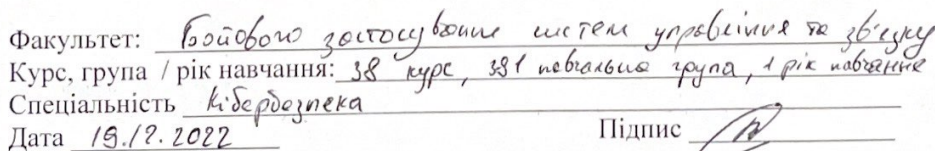 Факультет: Бойового застосування систем управління та зв'язку
Курс, група / рік навчання: 38 курс, 381 навчальна група, 1 рік навчання
Спеціальність Кібербезпека
Дата 19.12.2022 Підпис